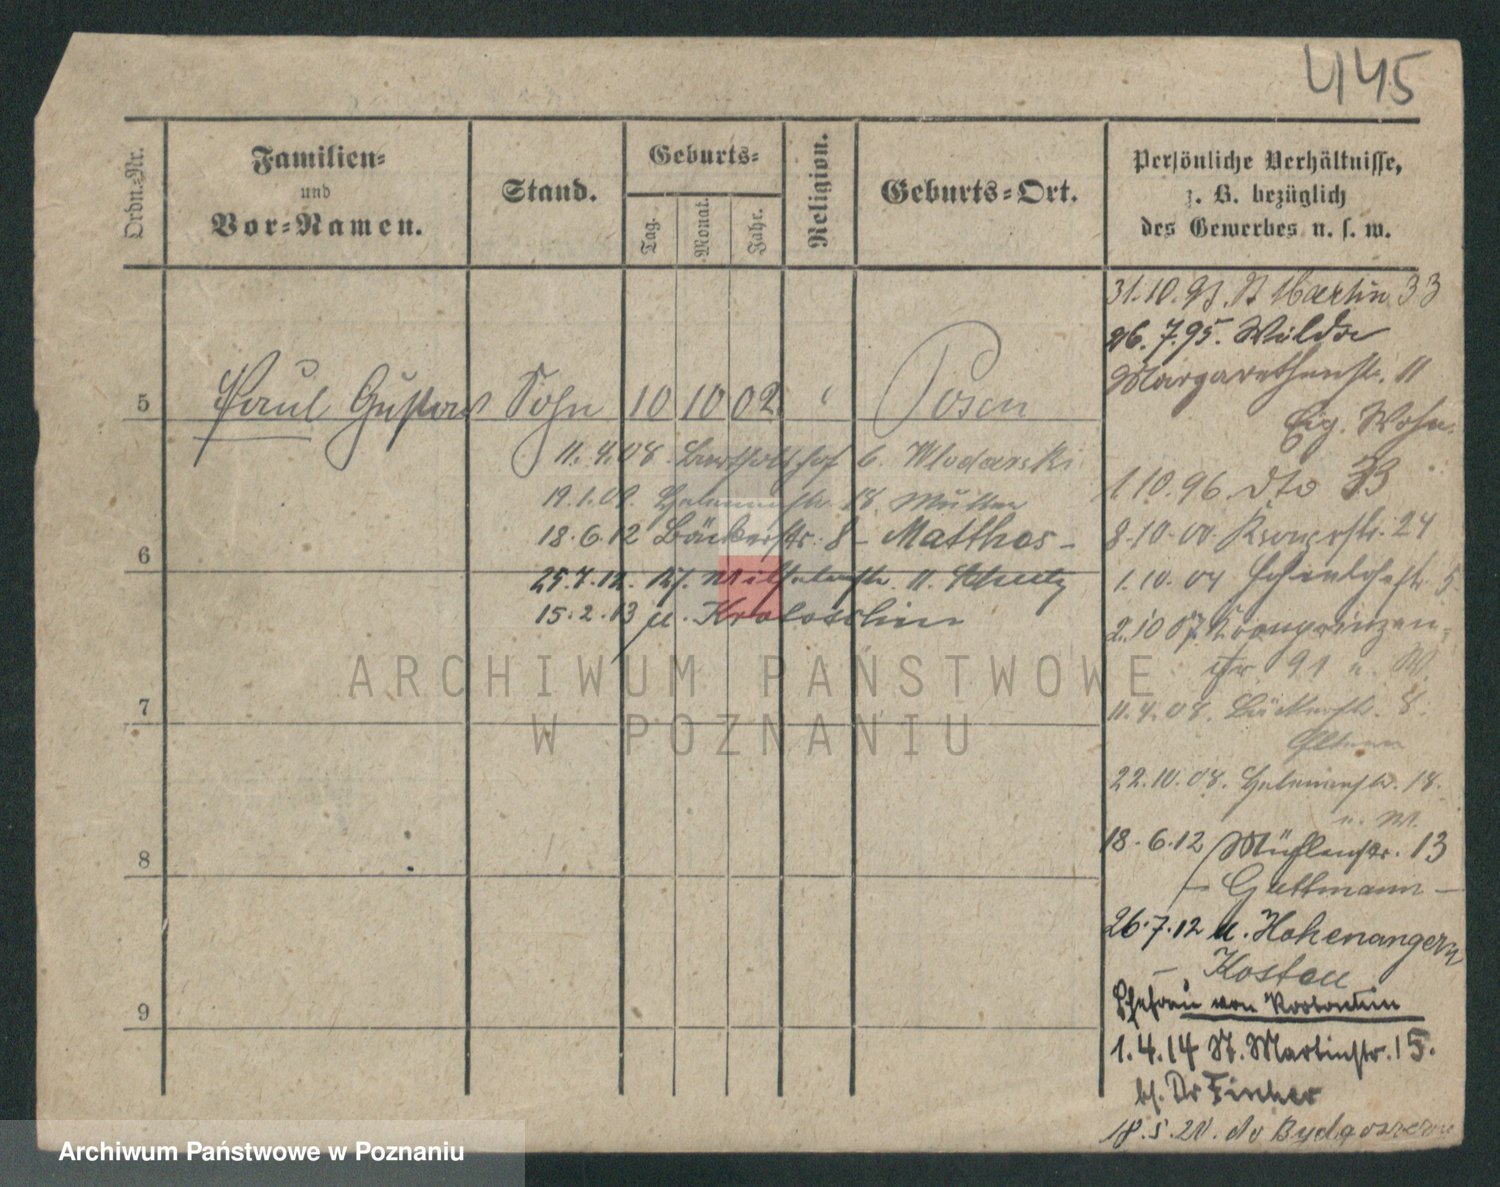 445
Ordn.-Nr.
Familien-
und
Vor-Namen.
Stand.
Geburts-
Tag.
Monat.
Jahr.
Religion.
Geburts-Ort.
Persönliche Verhältnisse,
z. B. bezüglich
des Gewerbes u. s. w.
5 Paul Gustav Sohn 10 10 02 " Posen
11.4.08 6. Wlodarski
19.1.09 Helenenstr. 18. Müller
18.6.12 Bäckerstr. 8 - Matthes -
6
25.7.12. 11.
15.2.13 u. Krotoschin
7
8
9
31.10.93. St Martin 33
26.7.95. Wilda
Margarethenstr. 11
Eig. Wohn.
1.10.96. dto 33
8.10.00. Kronerstr. 24
1.10.04 5
2.10 07. Kronprinzen-
str. 91 u. W.
11.4.08. Bäckerstr. 8.
Eltern
22.10.08. Helenenstr. 18.
u. W.
18.6.12 Mühlenstr. 13
- Guttmann -
26.7.12 u. Hohenangern
- Kosten
Ehefrau von Krotoschin
1.4.14 St. Martinstr. 15.
b. Dr Fischer
18.5.20. do Bydgoszczu
ARCHIWUM PAŃSTWOWE
W POZNANIU
Archiwum Państwowe w Poznaniu